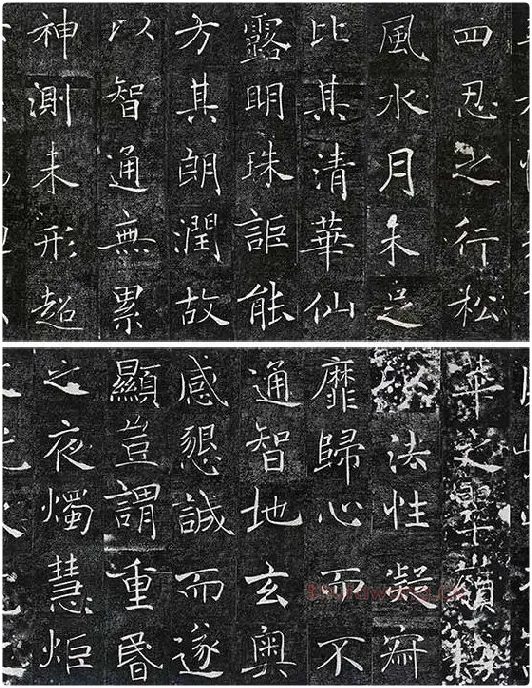 四忍之行松
風水月未足
比其清華仙
露明珠詎能
方其朗潤故
以智通無累
神測未形超
華之翠嶺竊
法性凝寂
靡歸心而不
通智地玄奧
感懇誠而遂
顯豈謂重昏
之夜燭慧炬